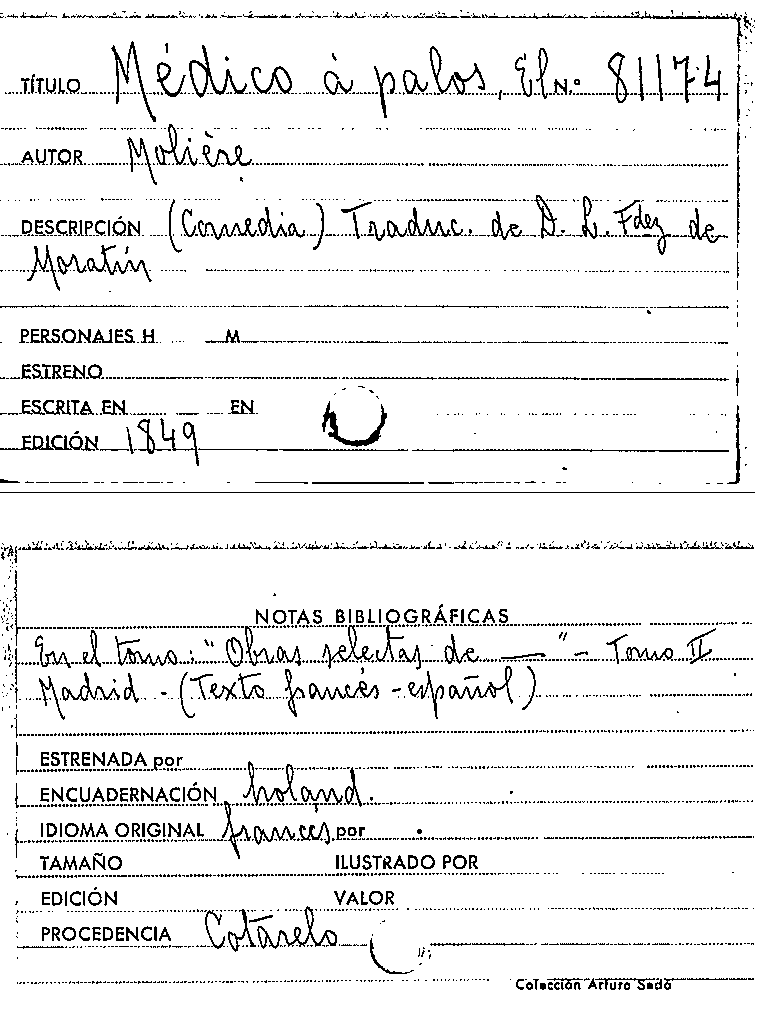 TÍTULO Médico á palos, El N.º 81174
AUTOR Molière
DESCRIPCIÓN (Comedia) Traduc. de D. L. Fdez de
Moratín
PERSONAJES H M
ESTRENO
ESCRITA EN EN
EDICIÓN 1849
NOTAS BIBLIOGRÁFICAS
En el tomo: "Obras selectas de —" - Tomo II
Madrid - (Texto francés - español)
ESTRENADA por
ENCUADERNACIÓN holand.
IDIOMA ORIGINAL francés por
TAMAÑO ILUSTRADO POR
EDICIÓN VALOR
PROCEDENCIA Cotarelo
Colección Arturo Sedó